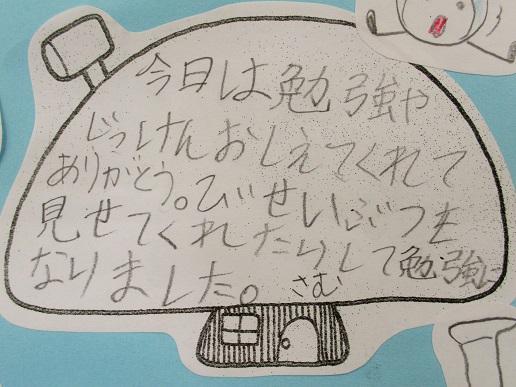 今日は勉強や
じっけんおしえてくれて
ありがとう。びせいぶつを
見せてくれたりして勉強に
なりました。さむ